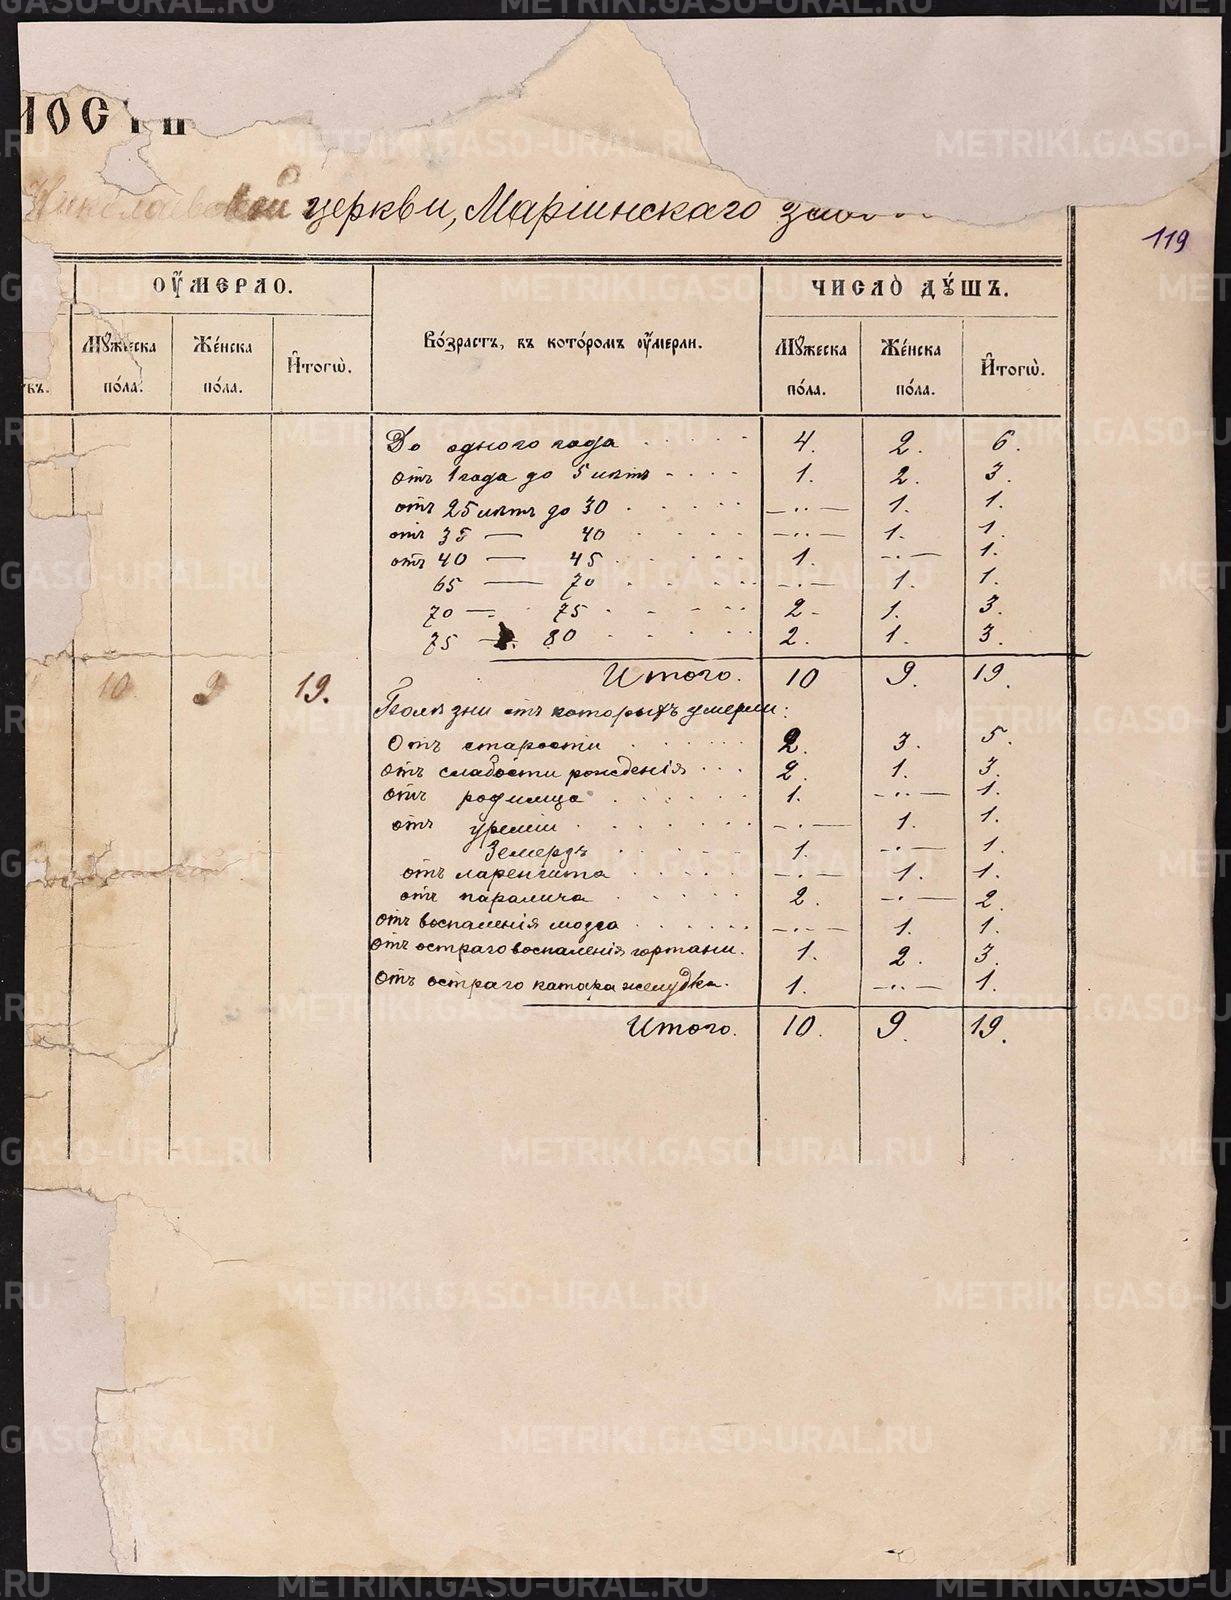 ности
Николаевской церкви, Маріинскаго
119
ОУМЕРЛО.
ЧИСЛО ДУШЪ.
Мужеска пола.
Женска пола.
Итогѡ.
Возрастъ, въ которомъ оумерли.
Мужеска пола.
Женска пола.
Итогѡ.
До одного года 4. 2. 6.
отъ 1 года до 5 лѣтъ 1. 2. 3.
отъ 25 лѣтъ до 30 —··— 1. 1.
отъ 35 — 40 —··— 1. 1.
отъ 40 — 45 1. —··— 1.
65 — 70 —··— 1. 1.
70 — 75 2. 1. 3.
75 — 80 2. 1. 3.
10. 9 19. Итого. 10 9. 19.
Болѣзни отъ которыхъ умерли:
Отъ старости 2. 3. 5.
отъ слабости рожденія 2. 1. 3.
отъ родимца 1. —··— 1.
отъ уреміи —··— 1. 1.
Замерзъ 1. —··— 1.
отъ ларенгита —··— 1. 1.
отъ паралича 2. —··— 2.
отъ воспаленія мозга —··— 1. 1.
отъ остраго воспаленія гортани. 1. 2. 3.
отъ остраго катара желудка. 1. —··— 1.
Итого. 10. 9. 19.
METRIKI.GASO-URAL.RU